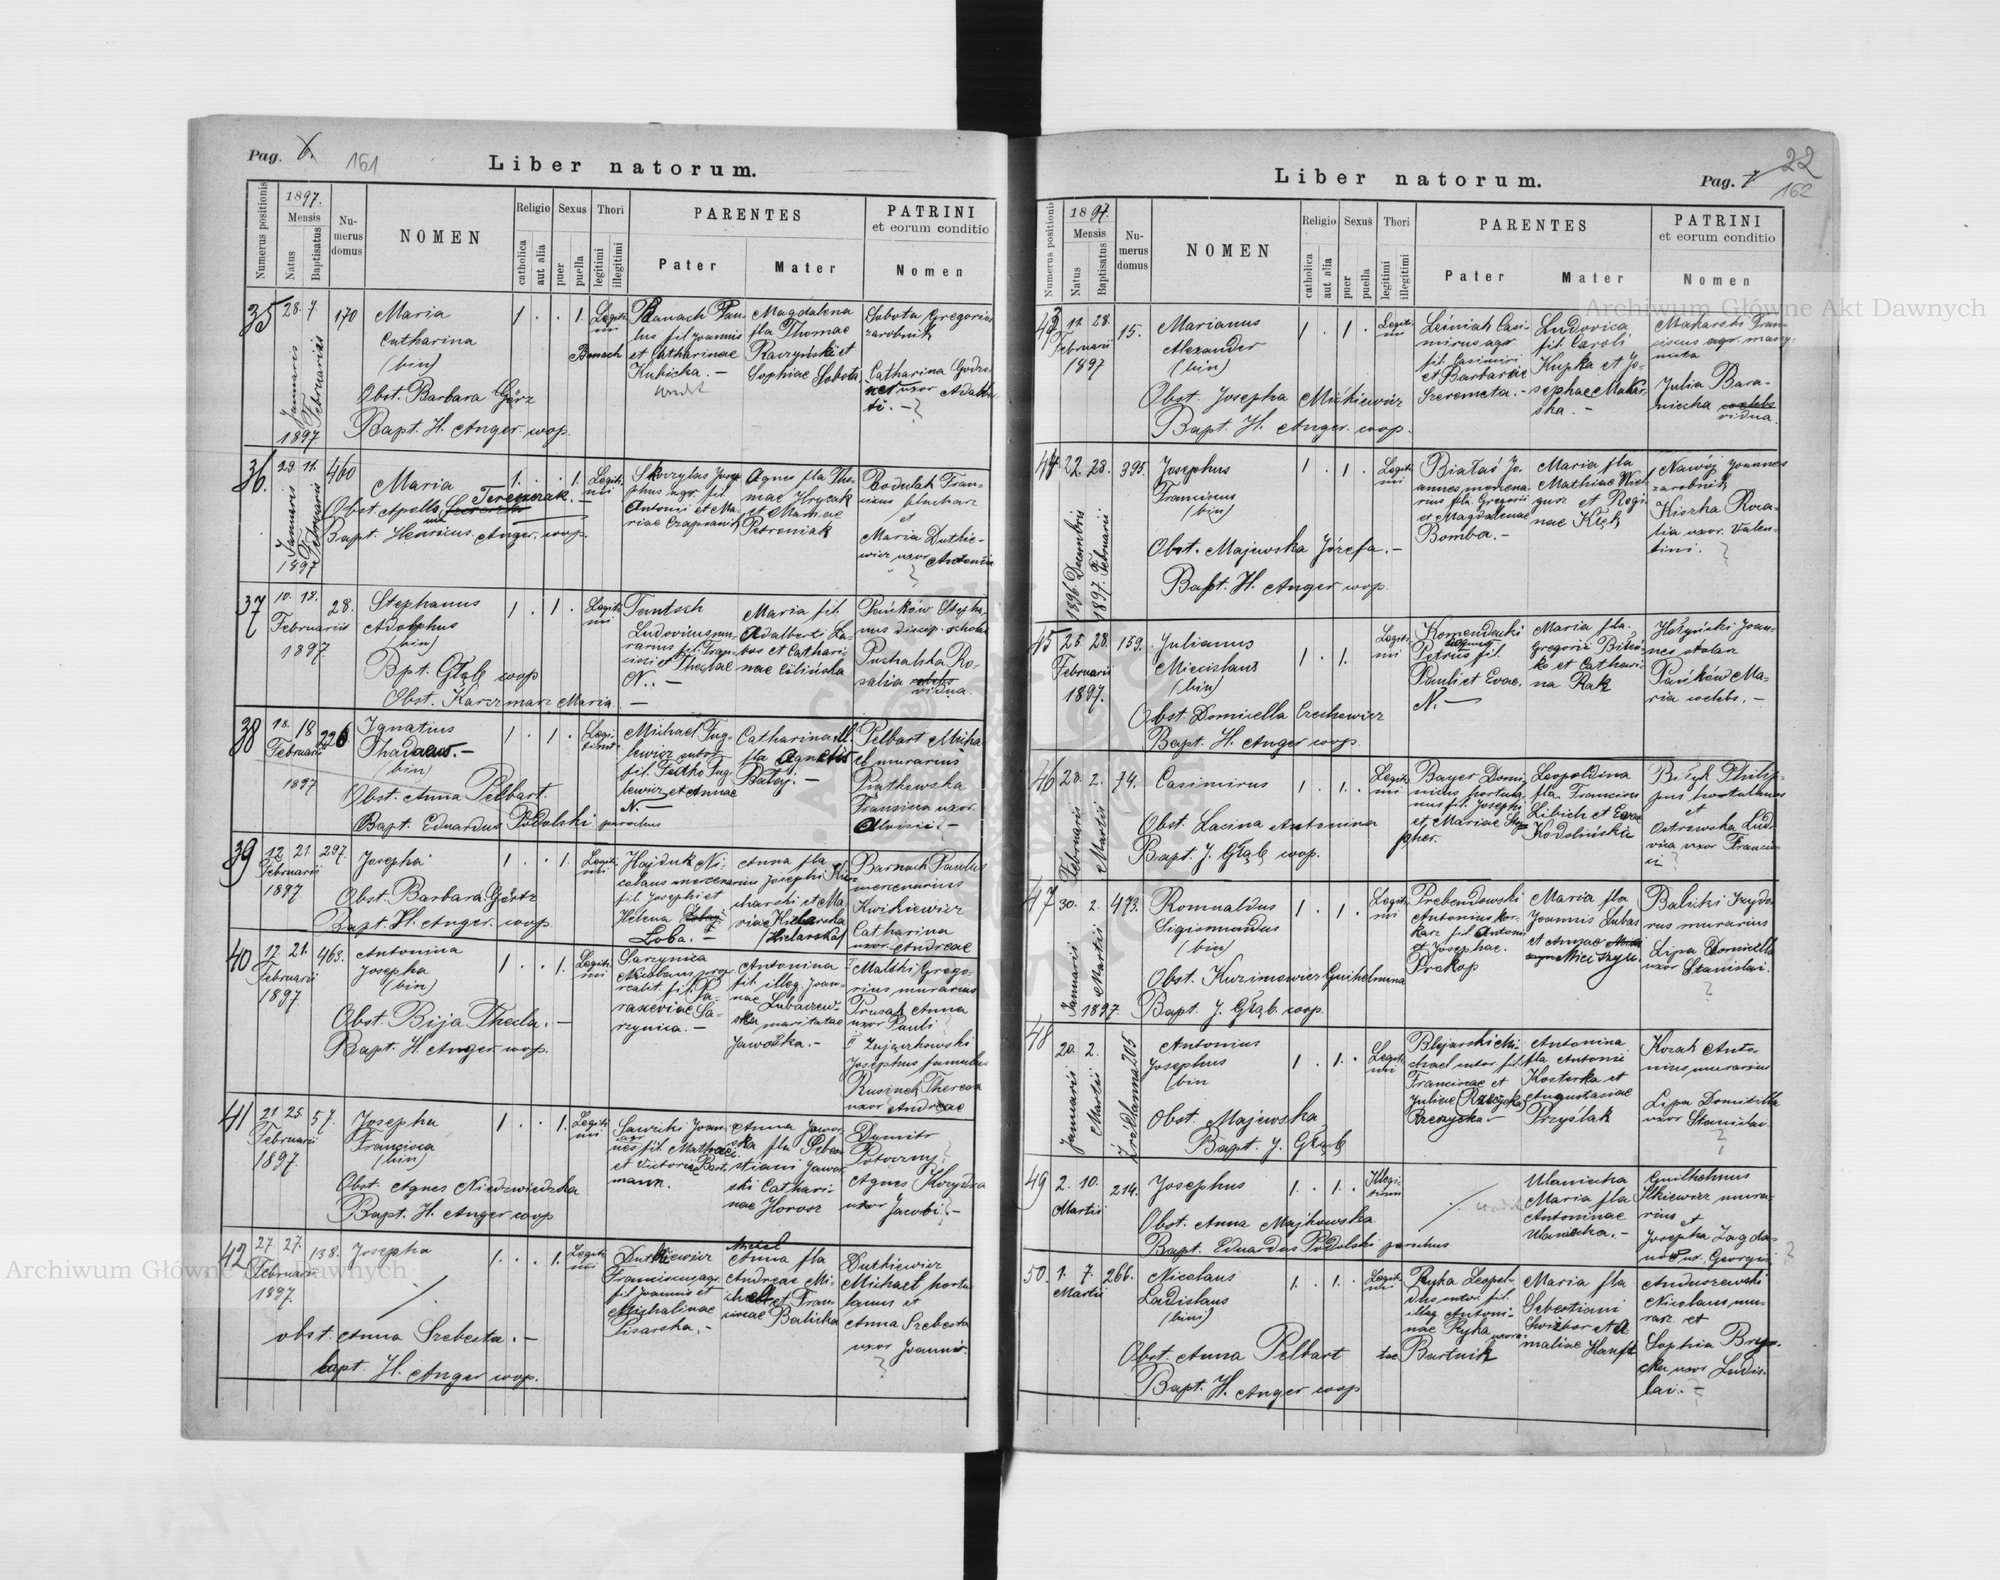 Pag. 6. 161
Liber natorum.
Numerus positionis
1897.
Mensis
Natus
Baptisatus
Nu-
merus
domus
NOMEN
Religio
catholica
aut alia
Sexus
puer
puella
Thori
legitimi
illegitimi
PARENTES
Pater
Mater
PATRINI
et eorum conditio
Nomen
35 28. 7. Januarii Februarii 1897 170
Maria
Catharina
(bin)
Obst. Barbara Görz
Bapt. H. Anger. coop.
1 . . 1. Legiti-
mi
Banach
Banach Pau-
lus fil Joannis
et Catharinae
Kubicka. —
Magdalena
fla Thomae
Raczyński et
Sophiae Sobota
Sobota Gregorius
zarobnik
Catharina
uxor Adalber-
ti. —
36. 29. 11. Januarii Februarii 1897 460
Maria
Obst. Apollonia Tereszczak. —
Bapt. Henricus Anger. coop.
1. . . 1. Legiti-
mi
Skorzylas Jose-
phus agr. fil
Antonii et Ma-
riae Czapranik
Agnes fla Tho-
mae Hryczak
et Mariae
Petroniak
Rodulak Fran-
ciscus
et
Maria Dutkie-
wicz uxor
Antonii
37 10. 18. Februarii 1897. 28.
Stephanus
Adolphus
(bin)
Bpt. Głąb coop
Obst. Karzmarz Maria. —
1 . 1 . Legiti-
mi
Tentsch
Ludovicus mu-
rarius fil. Fran-
cisci et Theclae
N.. —
Maria fil.
Adalberti La-
bos et Cathari-
nae Cilińska
Pańków Stepha-
nus discip. scholae
Puchalska Ro-
salia
vidua.
38 18. 18 Februarii 1897 226
Ignatius
Thadaeus. —
(bin)
Obst. Anna Pelbart.
Bapt. Eduardus Podolski parochus
1 . 1 . Legi-
timi
Michael Fug-
lewicz sutor
fil. Fedko Fug-
lewicz et Annae
N. —
Catharina ill.
fla Agnetis
Bataj. —
Pelbart Micha-
el murarius
Piatkowska
Francisca uxor.
Aloisii. —
39 12. 21. Februarii 1897. 297.
Josepha
Obst. Barbara Görtz
Bapt. H. Anger. coop.
1 . . 1. Legiti-
mi
Hajduk Ni-
colaus mercenarius
fil. Josephi et
Helena
Loba. —
Anna fla
Josephi Ku-
charski et Ma-
riae Kielarska
/Kielarska/
Barnach Paulus
mercenarius
Kwikiewicz
Catharina
uxor Andreae
40 17. 21. Februarii 1897. 463.
Antonina
Josepha
(bin)
Obst. Bija Thecla. —
Bapt. H. Anger. coop.
1 . . 1. Legiti-
mi
Sarzynica
Nicolaus
realit. fil. Pa-
rasceviae Sa-
rzynica. —
Antonina
fil. illeg. Joan-
nae Lubaczew-
ska maritatae
Jaworska. —
I Malski Grego-
rius murarius
Prusak Anna
uxor Pauli
II Zajączkowski
Josephus famulus
Rusinek Theresa
uxor Andreae
41 21 25 Februarii 1897. 57.
Josepha
Francisca
(bin)
Obst. Agnes Niedzwiedzka
Bapt. H. Anger coop
1 . . 1. Legiti-
mi
Sawicki Joan-
nes agr. fil Mathaei
et Victoria Bart-
mann.
Anna Jawor-
ska fla Sebas-
tiani Jawor-
ski Cathari-
nae Horvor
Dymitr
Potoczny.
Agnes Korydra
uxor Jacobi. —
42 27. 27. Februarii 1897. 138.
Josepha
obst. Anna Srebesta. —
bapt. H. Anger coop.
1. . . 1. Legiti-
mi
Dutkiewicz
Franciscus agr.
fil Joannis et
Michalinae
Pisarska. —
Michel
Anna fla
Andreae Mi-
chel et Fran-
ciscae Balicka
Dutkiewicz
Michael hortu-
lanus et
Anna Srebesta
uxor Joannis.
Liber natorum.
Pag. 7 22
162
Numerus positionis
1897.
Mensis
Natus
Baptisatus
Nu-
merus
domus
NOMEN
Religio
catholica
aut alia
Sexus
puer
puella
Thori
legitimi
illegitimi
PARENTES
Pater
Mater
PATRINI
et eorum conditio
Nomen
43 11. 28. Februarii 1897 15.
Marianus
Alexander
(bin)
Obst. Josepha Mickiewicz
Bapt. H. Anger. coop.
1 . 1 . Legiti-
mi
Leśniak Casi-
mirus agr.
fil. Casimiri
et Barbarae
Szeremeta. —
Ludovica
fil. Caroli
Kupka et Jo-
sephae Makar-
ska. —
Makarski Fran-
ciscus agr.
Julia Bara-
niecka coelebs
vidua.
44 22. 28. 1896 Decembris 1897. Februarii 395.
Josephus
Franciscus
(bin)
Obst. Majewska Józefa. —
Bapt. H. Anger coop.
1 . 1 . Legiti-
mi
Białaś Jo-
annes mercena-
rius fil. Gregorii
et Magdalenae
Bomba. —
Maria fla
Mathiae Wiel-
gusz et Regi-
nae Kłęk
Nawój Joannes
zarobnik
Kiszka Rosa-
lia uxor. Valen-
tini.
45 25. 28. Februarii 1897. 159.
Julianus
Miecislaus
(bin)
Obst. Domicella Czechowicz
Bapt. H. Anger coop.
1 . 1. Legiti-
mi
Komendecki
Petrus fil.
Pauli et Evae.
N. —
Maria fla.
Gregorii Biłeń-
ki et Cathari-
na Rak
Hołyński Joan-
nes stolarz
Pańków Ma-
ria coelebs. —
46 28. 2. Februarii Martii 74.
Casimirus
Obst. Lacina Antonina
Bapt. J. Głąb coop.
1 . 1. . Legiti-
mi
Bayer Domi-
nicus hortula-
nus fil. Josephi
et Mariae Ste-
pher.
Leopoldina
fla. Francisci
Libich et Evae
Kodolińskie
Biłyk Philip-
pus hortulanus
et
Ostrowska Lud-
vica uxor Francis-
ci
47 30. 2. Januarii Martii 1897. 473.
Romualdus
Sigismundus
(bin)
Obst. Kuzimowicz Guilhelmina
Bapt. J. Głąb. coop.
1 . 1 . Legiti-
mi
Prebendowski
Antonius
fil Antonii
et Josephae.
Prokop
Maria fla
Joannis Lubas
et Annae
Miciszyn.
Balicki Izydo-
rus murarius
Lipa Domicella
uxor Stanislai.
48 20. 2. Januarii Martii 205
Antonius
Josephus
(bin
Obst. Majewska
Bapt. J. Głąb
1 . 1. . Legiti-
mi
Blejarski Mi-
chael sutor fil.
Franciscae et
Juliae (Rzczycka)
Raczycka —
Antonina
fla Antonii
Kosterka et
Augustasiae
Przyślak
Kozak Anto-
nius murarius
Lipa Domitilla
uxor Stanislai.
49 2. 10. Martii 214.
Josephus
Obst. Anna Majkowska
Bapt. Eduardus Podolski parochus
1. . 1. . Illegi-
timi
Ulanicka
Maria fla
Antoninae
Ulanicka. —
Guilhelmus
Ilkiewicz mura-
rius
et
Josepha Zagda-
ux. Georgii
50. 1. 7. Martii 266.
Nicolaus
Ladislaus
(bin)
Obst. Anna Pelbart
Bapt. H. Anger coop
1. . 1. . Legiti-
mi
Ryka Leopol-
dus sutor. fil.
illeg. Antoni-
nae Ryka
Burtnik
Maria fla
Sebestiani
Swizbor et A-
maliae Hanft
Anduszewski
Nicolaus mu-
rarz. et
Sophia Bryc-
cka uxor Ladis-
lai. —
Archiwum Główne Akt Dawnych
Archiwum Główne Akt Dawnych